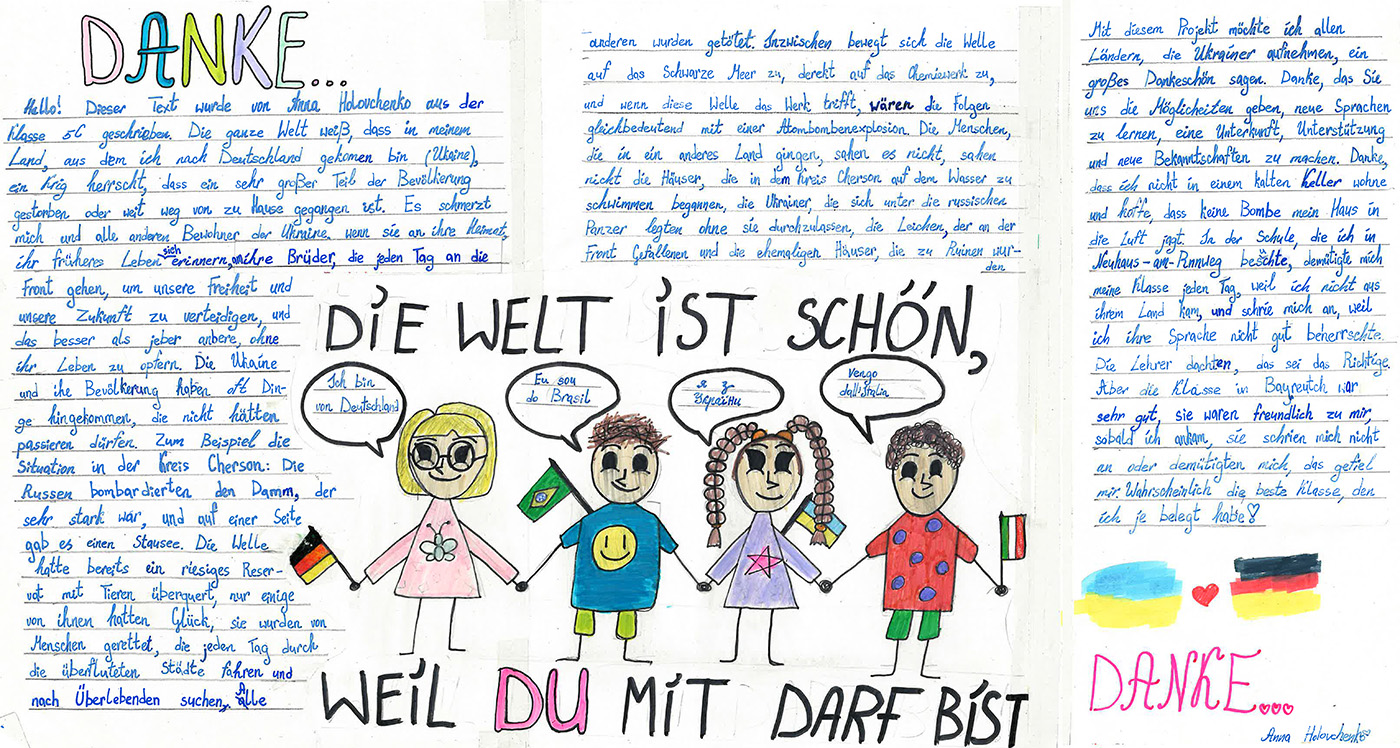 DANKE...
Hello! Dieser Text wurde von Anna Holovchenko aus der
Klasse 5C geschrieben. Die ganze Welt weiß, dass in meinem
Land, aus dem ich nach Deutschland gekomen bin (Ukaine),
ein Krig herrscht, dass ein sehr großer Teil der Bevölkierung
gestorben oder weit weg von zu Hause gegangen ist. Es schmerzt
mich und alle anderen Bewohner der Ukraine, wenn sie an ihre Heimat,
ihr früheres Leben sich erinnern, an ihre Brüder, die jeden Tag an die
Front gehen, um unsere Freiheit und
unsere Zukunft zu verteidigen, und
das besser als jeber anbere, ohne
ihr Leben zu opfern. Die Ukaine
und ihe Bevölkerung haben oft Din-
ge hingekommen, die nicht hätten
passieren dürfen. Zum Beispiel die
Situation in der Kreis Cherson: Die
Russen bombardierten den Damm, der
sehr stark war, und auf einer Seite
gab es einen Stausee. Die Welle
hatte bereits ein riesiges Reser-
vat mit Tieren überquert, nur einige
von ihnen hatten Glück, sie wurden von
Menschen gerettet, die jeden Tag durch
die überfluteten Städte fahren und
nach Überlebenden suchen, Alle
anderen wurden getötet. Inzwischen bewegt sich die Welle
auf das Schwarze Meer zu, derekt auf das Chemiewerk zu,
und wenn diese Welle das Werk trifft, wären die Folgen
gleichbedeutend mit einer Atombombenexplosion. Die Menschen,
die in ein anderes Land gingen, sahen es nicht, sahen
nicht die Häuser, die in dem Kreis Cherson auf dem Wasser zu
schwimmen begannen, die Ukrainer, die sich unter die russischen
Panzer legten ohne sie durchzulassen, die Leichen, der an der
Front Gefallenen und die ehemaligen Häuser, die zu Ruinen wur-
den
DIE WELT IST SCHÖN,
Ich bin
von Deutschland
Eu sou
do Brasil
я з
України
Vengo
dall'Italia
WEIL DU MIT DARF BIST
Mit diesem Projekt möchte ich allen
Ländern, die Ukrainer aufnehmen, ein
großes Dankeschön sagen. Danke, das Sie
uns die Möglicheiten geben, neue Sprachen
zu lernen, eine Unterkunft, Unterstützung
und neue Bekanntschaften zu machen. Danke,
dass ich nicht in einem kalten Keller wohne
und hoffe, dass keine Bombe mein Haus in
die Luft jagt. In der Schule, die ich in
Neuhaus-am-Rennweg besuchte, demütigte mich
meine Klasse jeden Tag, weil ich nicht aus
ihrem Land kam, und schrie mich an, weil
ich ihre Sprache nicht gut beherrschte.
Die Lehrer dachten, das sei das Richtige.
Aber die Klasse in Bayreutch war
sehr gut, sie waren freundlich zu mir,
sobald ich ankam, sie schrien mich nicht
an oder demütigten mich, das gefiel
mir. Wahrscheinlich die beste Klasse, den
ich je belegt habe
DANKE...
Anna Holovchenko